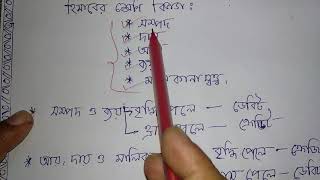 হিসাবের শ্রেণী বিভাগ:
* সম্পদ
* দায়
* আয়
* ব্যয়
* মালিকানা স্বত্ব,
* সম্পদ ও ব্যয় বৃদ্ধি পেলে — ডেবিট
হ্রাস পেলে — ক্রেডিট
* আয়, দায় ও মালিক বৃদ্ধি পেলে — ক্রেডি
পেলে — ডেবিট